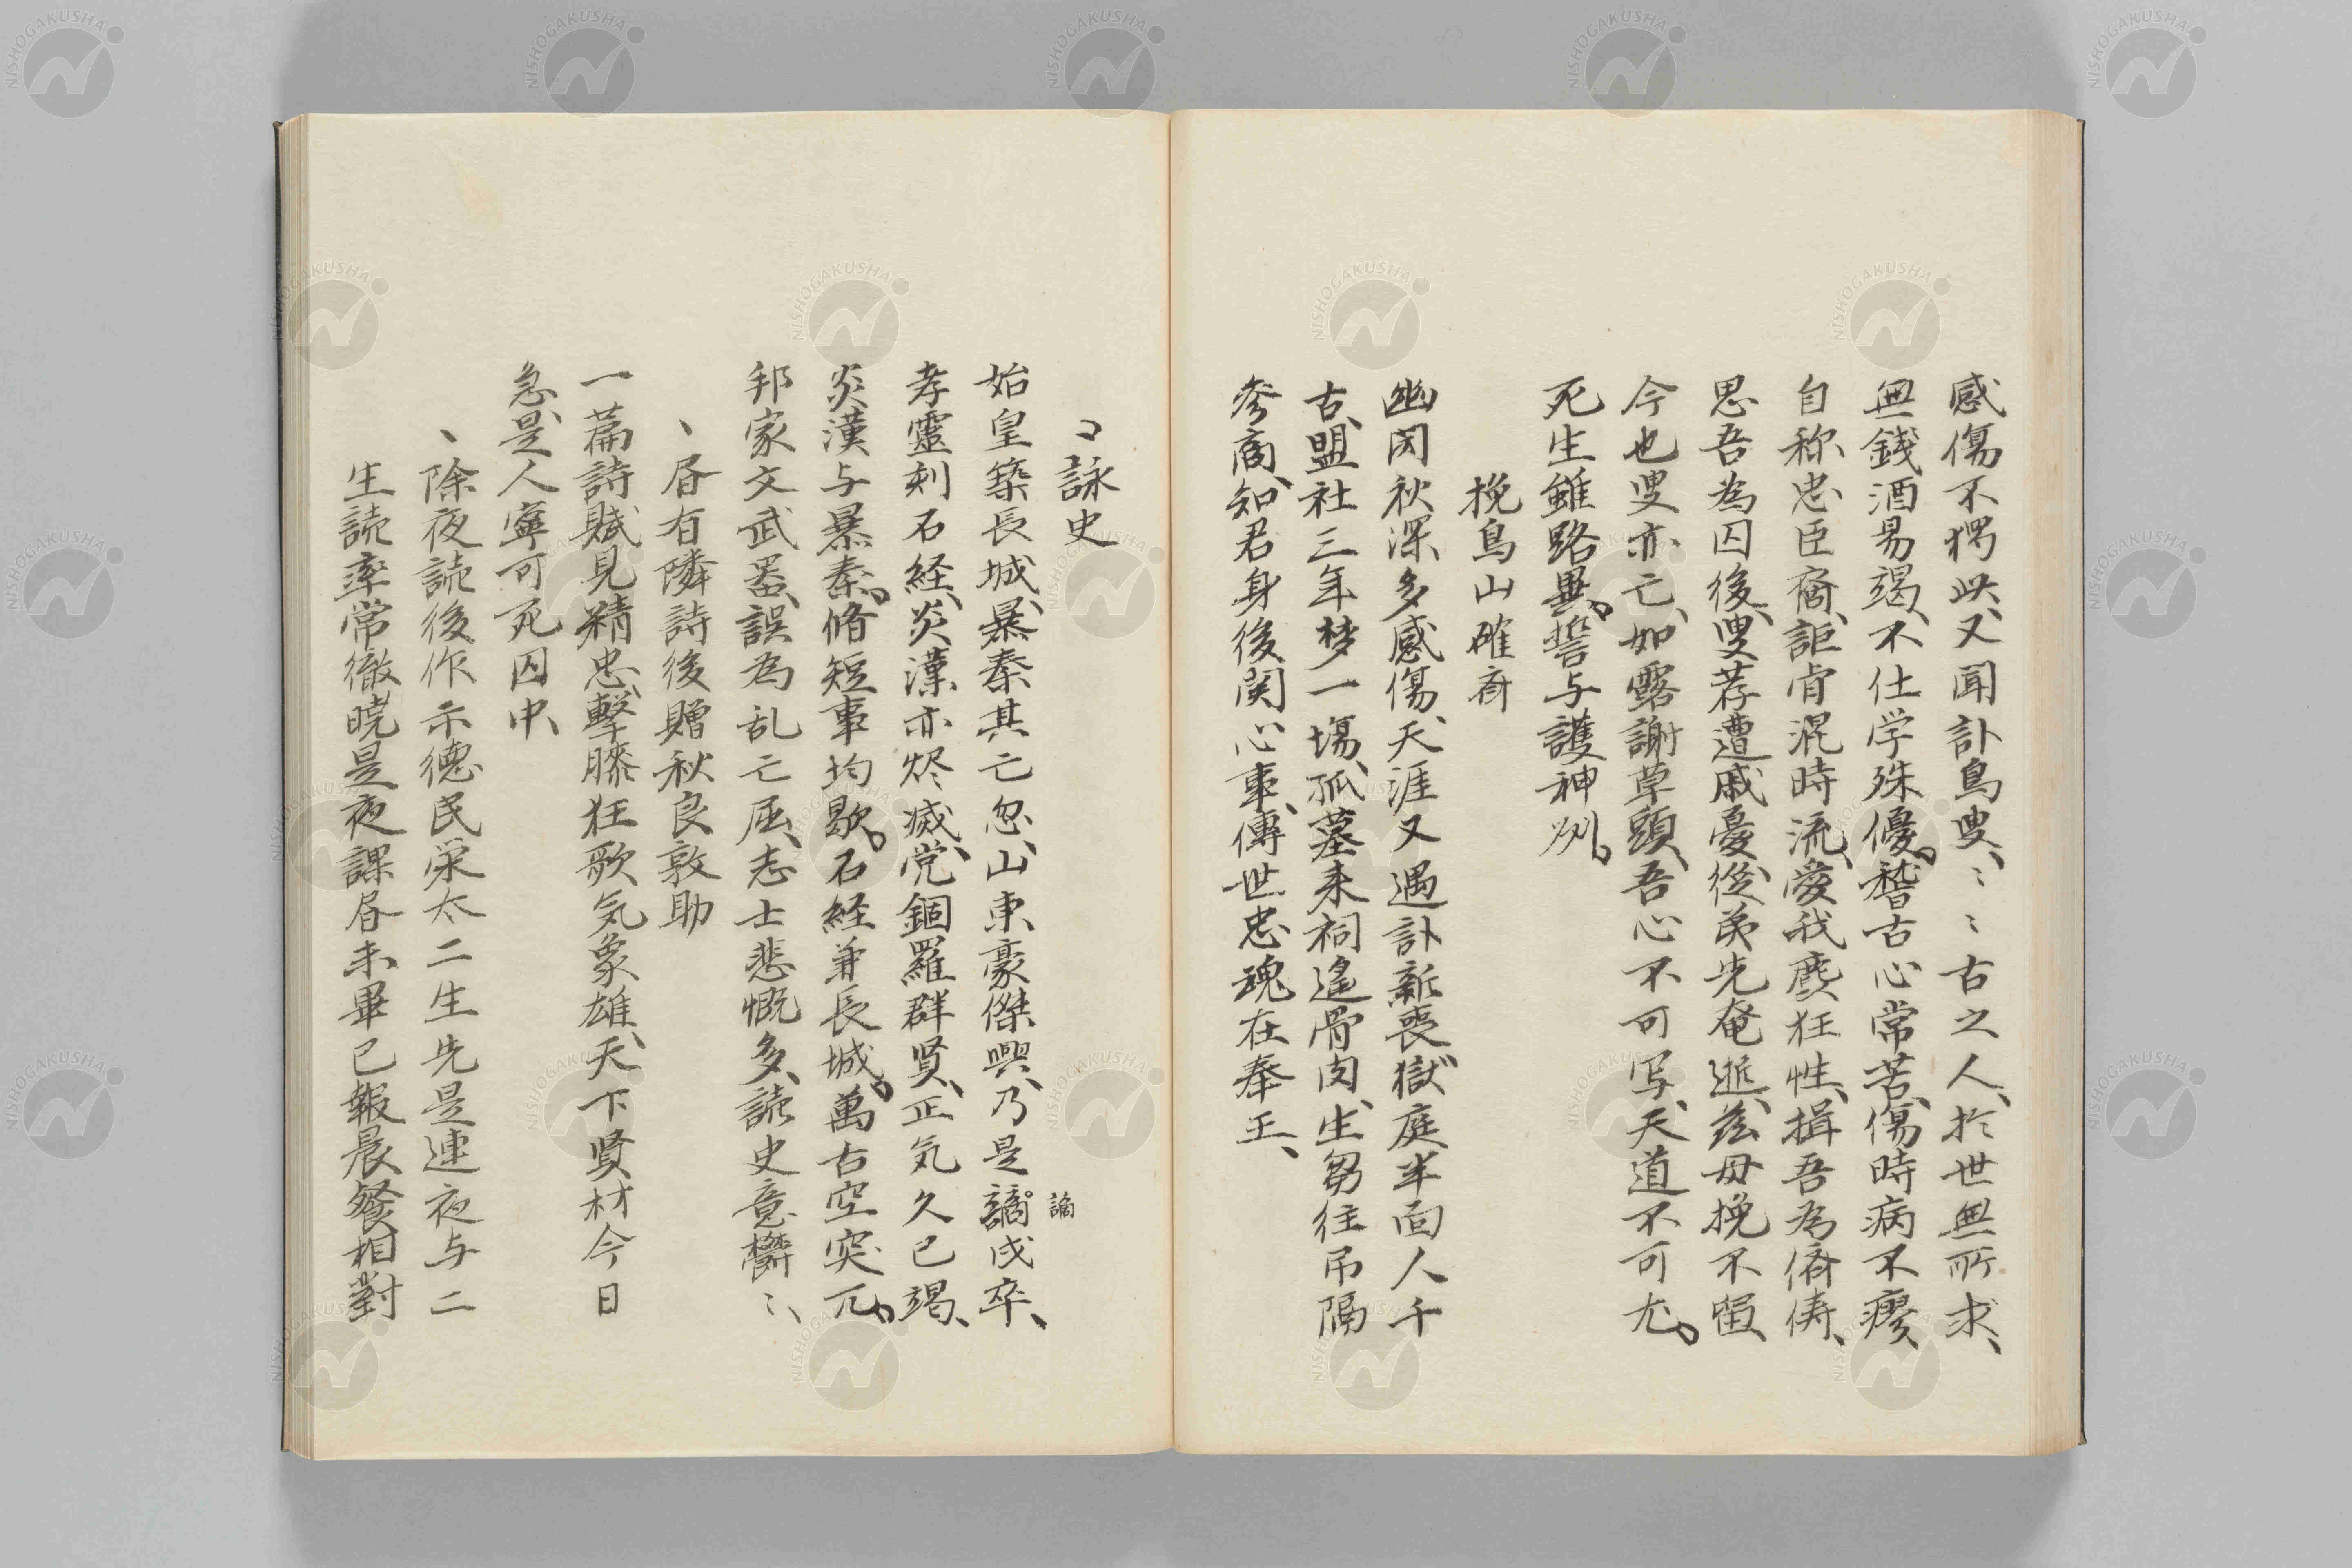 感傷不獨此、又聞訃鳥叟、〻〻古之人、於世無所求、
無錢酒易竭、不仕学殊優。稽古心常苦、傷時病不瘳、
自称忠臣裔、詎肯混時流、愛我麑狂性、揖吾為儕儔、
思吾為囚後、叟荐遭戚憂、従弟先奄逝、茲母挽不留、
今也叟亦亡、如露謝草頭、吾心不可写、天道不可尤。
死生雖路異。誓与護神州。
挽鳥山確斎
幽閉秋深多感傷、天涯又遇訃新喪、獄庭半面人千
古、盟社三年梦一場、孤墓来祠遙骨肉、生芻往吊隔
参商、知君身後関心事、傳世忠魂在奉王、
、詠史
始皇築長城、暴秦其亡忽、山東豪傑興、乃是謫戍卒、
謫
孝靈刻石経、炎漢亦烬滅、党錮羅群賢、正気久已竭、
炎漢与暴秦。脩短事均歇。石経兼長城。萬古空突兀。
邦家文武噐、誤為乱亡屈、志士悲慨多、読史意欝〻、
、居有隣詩後贈秋良敦助
一篇詩賦見精忠、擊膝狂歌気象雄、天下賢材今日
急、是人寧可死囚中、
、除夜読後作示德民栄太二生先是連夜与二
生読率常徹曉是夜課居未畢已報晨餐相對